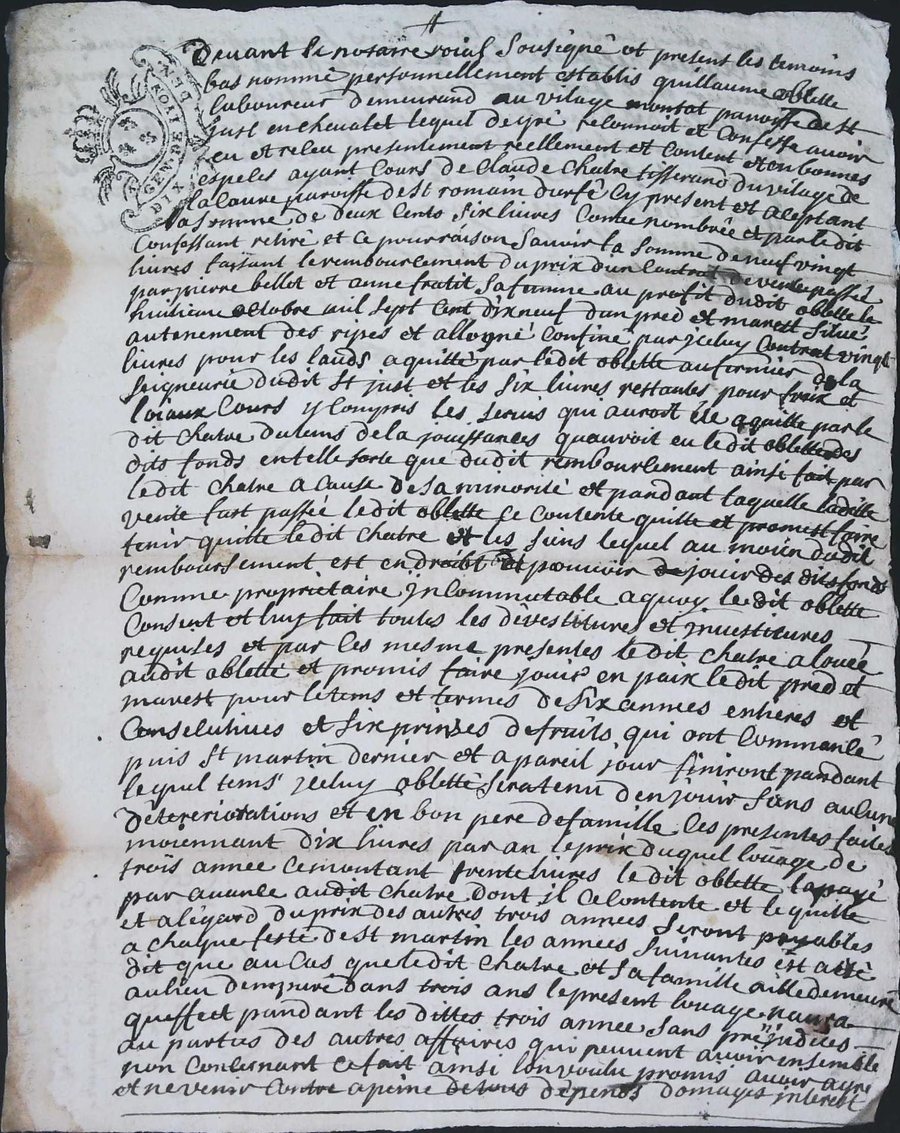 GEN. DE LYON
DIX DEN
Devant le notaire roial Sousigné et présent les temoins
bas nommé personnellement establis guillaume oblette
laboureur demeurand au vilage montat paroisse de St
just en chevalet lequel de gré reconnoit et Confesse avoir
eu et releu presentement réellement et Content et en bonnes
espeles ayant Cours de Claude Chatre tisserand du vilage de
la Laure paroisse de St romain durfé Cy present et aleptant
la Somme de deux Cents Six livres Conte nombrée et par le dit
Confessant retiré et ce pour raison Savoir la Somme de neuf vingt
livres faisant le rembourcement du prix d'un Contrat de vente passée
par pierre bellot et anne fratit Sa femme au profit dudit oblette le
huitieme octobre mil Sept Cent dixneuf d'un pred et marest Situé
au tenement des ripes et allogné Confiné par jceluy Contrat vingt
livres pour les lauds aquitté par le dit oblette au firmier de la
Seigneurie dudit St just et les Six livres restantes pour fraix et
loiaux Cours y Compris les servis qui auroit été aquitte par le
dit Chatre du tems de la jouissances qu'auvoit eu le dit oblette des
dits fonds en telle sorte que dudit rembourlement ainsi fait par
le dit Chatre a Cause de Sa minorité et pandant laquelle ladite
vente fust passée le dit oblette Se Contente quitte et promest faire
tenir quitte le dit Chatre et les Siens lequel au moien dudit
remboursement est en droibt de pouvoir jouir des dits fonds
Comme propriétaire jnCommutable a quoy le dit oblette
Consent et luy fait toutes les dévestitures et investitures
requises et par les mesme presentes le dit Chatre a louée
audit oblette et promis faire jouir en paix le dit pred et
marest pour le tems et termes de Six années entieres et
Conselutives et Six prinzes de fruits qui ont Commanlé
puis St martin dernier et a pareil jour finiront pandant
lequel tems jceluy oblette Sera tenu d'en jouir Sans aulune
Détereriorations et en bon pere de famille Les presentes faites
moiennant dix livres par an le prix duquel louage de
trois année Ce montant trente livres le dit oblette la payé
par avanle audit Chatre dont il Ce Contente et le quitte
et alégard du prix des autres trois années Seront payables
a Chaque feste de St martin les années Suivantes est a été
dit que au Cas que le dit Chatre et Sa famille aille demeuré
au lieu demeuré dans trois ans le present louage naura
queffect pandant les dittes trois année Sans préjudices
au parties des autres affaires qui peuvent avoir ensemble
non Conlernant Ce fait ainsi lont voulu promis avoir agre
et ne venir Contre a peine de tous dépends domages interest